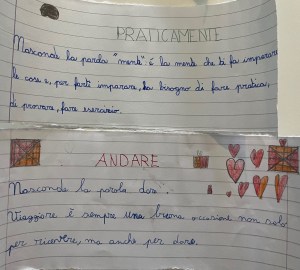 PRATICAMENTE
Nasconde la parola "mente": è la mente che ti fa imparare
le cose e, per farti imparare, ha bisogno di fare pratica,
di provare, fare esercizio.
ANDARE
Nasconde la parola dare.
Viaggiare è sempre una buona occasione non solo
per ricevere, ma anche per dare.